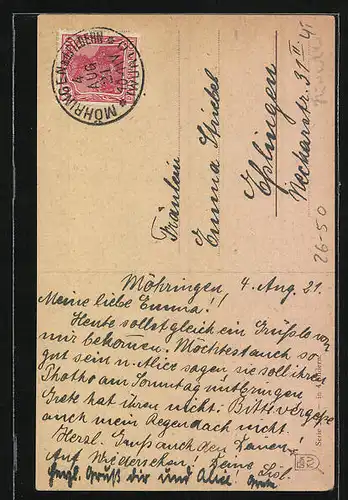 MÖHRINGEN a. d. FILDERN
4 AUG
Fräulein
Emma
Esslingen
Neckarstr. 31 II
26-50
Möhringen, 4. Aug. 21.
Meine liebe Emma!!
Heute sollst gleich ein Grüßle von
mir bekommen. Möchtest auch so
gut sein u. Alice sagen sie soll ihren
Photho am Sonntag mitbringen
Grete hat ihren nicht. Bitte vergesse
auch mein Regendach nicht!
Herzl. Gruß auch den Deinen!
Auf Wiedersehen Deine
Hrzl. Gruß dir und Alice. Grete
Serie